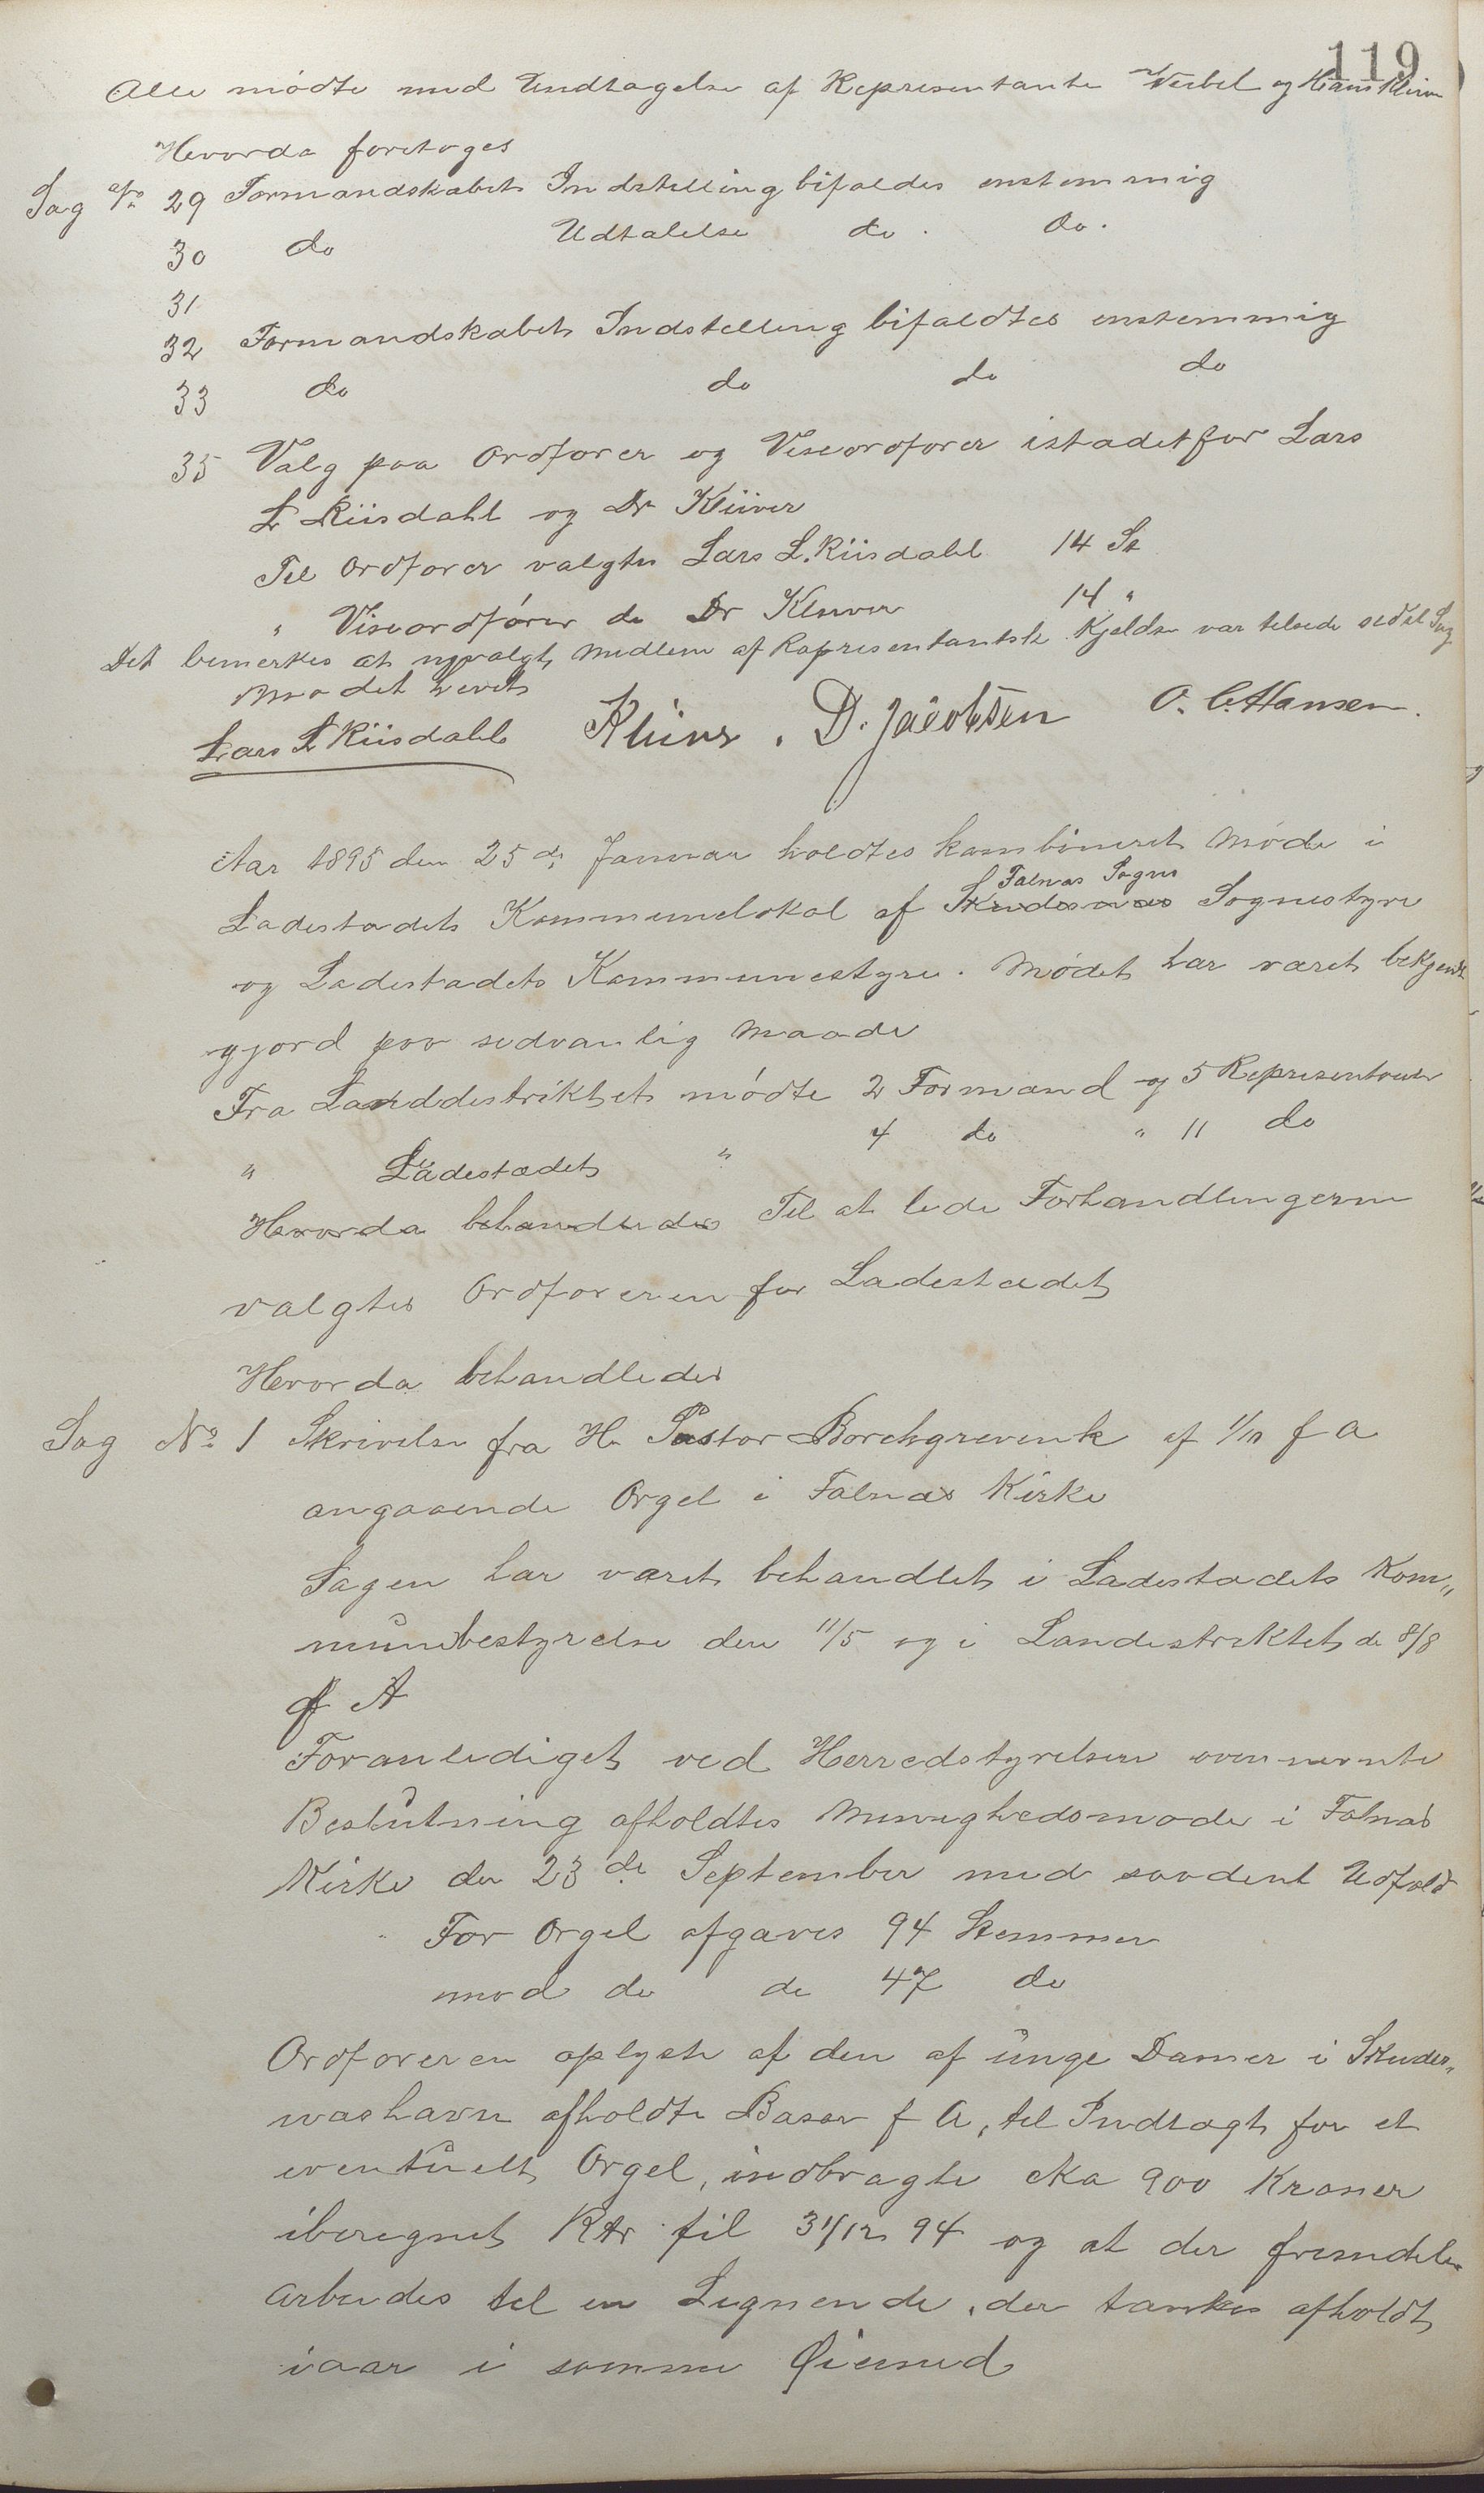 119
Alle mødte med Undtagelse af Representante Veibel og Hans
Hvorda foretoges
Sag No 29 Formandskabets Indstilling bifaldes enstemmig
30 do Udtalelse do. do.
31
32 Formandskabets Indstelling bifaldtes enstemmig
33 do do do do
35 Valg paa Ordfører og Viseordfører istadetfor Lars
L Riisdahl og Dr Klüver
Til Ordfører valgtes Lars L. Riisdahl 14 St
" Viseordfører do Dr Kluver 14 "
Det bemerkes at nyvalgt Medlem af Representantsk. Kjeldsen var tilsede ved Sag
Mødet hevet
Lars L Riisdahl Klüver. D. Jacobsen O. C. Hansen.
Aar 1895 den 25de Januar holdtes kombineret Møde i
Falnæs Sogns
Ladestadets Kommunelokal af Skudesnæs Sognestyre
og Ladestadets Kommunestyre. Mødet har været bekjendt
gjord paa sedvanlig Maade
Fra Landdestriktet mødte 2 Formænd og 5 Representanter
" Ladestædet " 4 do " 11 do
Hvorda behandledes Til at lede Forhandlingerne
valgtes Ordføreren for Ladestædet
Hvorda behandledes
Sag No 1 Skrivelse fra Hr Pastor Borchgrevink af 1/10 f A
angaaende Orgel i Falnæs Kirke
Sagen har været behandlet i Ladestadets Kom„
munebestyrelse den 11/5 og i Landestriktet de 8/8
f A
Foranlediget ved Herredstyrelsen ovennevnte
Beslutning afholdtes Menighedsmøde i Falnæs
Kirke den 23de September med saadent Udfald
For Orgel afgaves 94 Stemmer
mod do do 47 do
Ordføreren oplyste af den af unge Damer i Skudes„
næshavn afholdte Basar f A, til Indtægt for et
eventuelt Orgel, indbragte cka 900 Kroner
iberegnet Rtr til 31/12 94 og at der fremdeles
arbeides til en Lignende, der tænkes afholdt
iaar i samme Øiemed